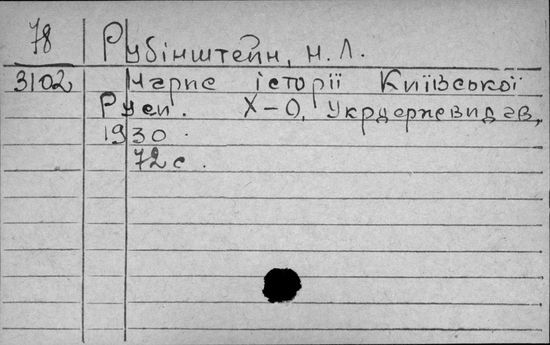 78 Рубінштейн, Н. Л.
3102 Нарис історії Київської
Руси. Х-О, Укрдержвидав,
1930.
72 с.